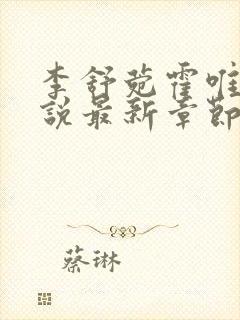 李舒菀霍唯
說最新章節
蔡琳